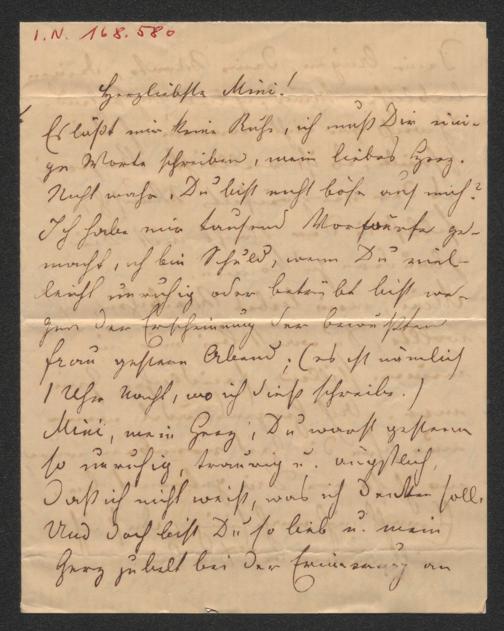 I.N. 168.580
Herzliebste Mini!
Es läßt mir keine Ruhe, ich muß Dir eini-
ge Worte schreiben, mein liebes Herz.
Nicht wahr, Du bist nicht böse auf mich?
Ich habe mir tausend Vorwürfe ge-
macht, ich bin Schuld, wenn Du viel-
leicht unruhig oder betrübt bist we-
gen der Erscheinung der bewußten
Frau gestern Abend; (es ist nämlich
1 Uhr Nacht, wo ich dieß schreibe.)
Mini, mein Herz, Du warst gestern
so unruhig, traurig u. ängstlich,
daß ich nicht weiß, was ich denken soll.
Und doch bist Du so lieb u. mein
Herz jubelt bei der Erinnerung an